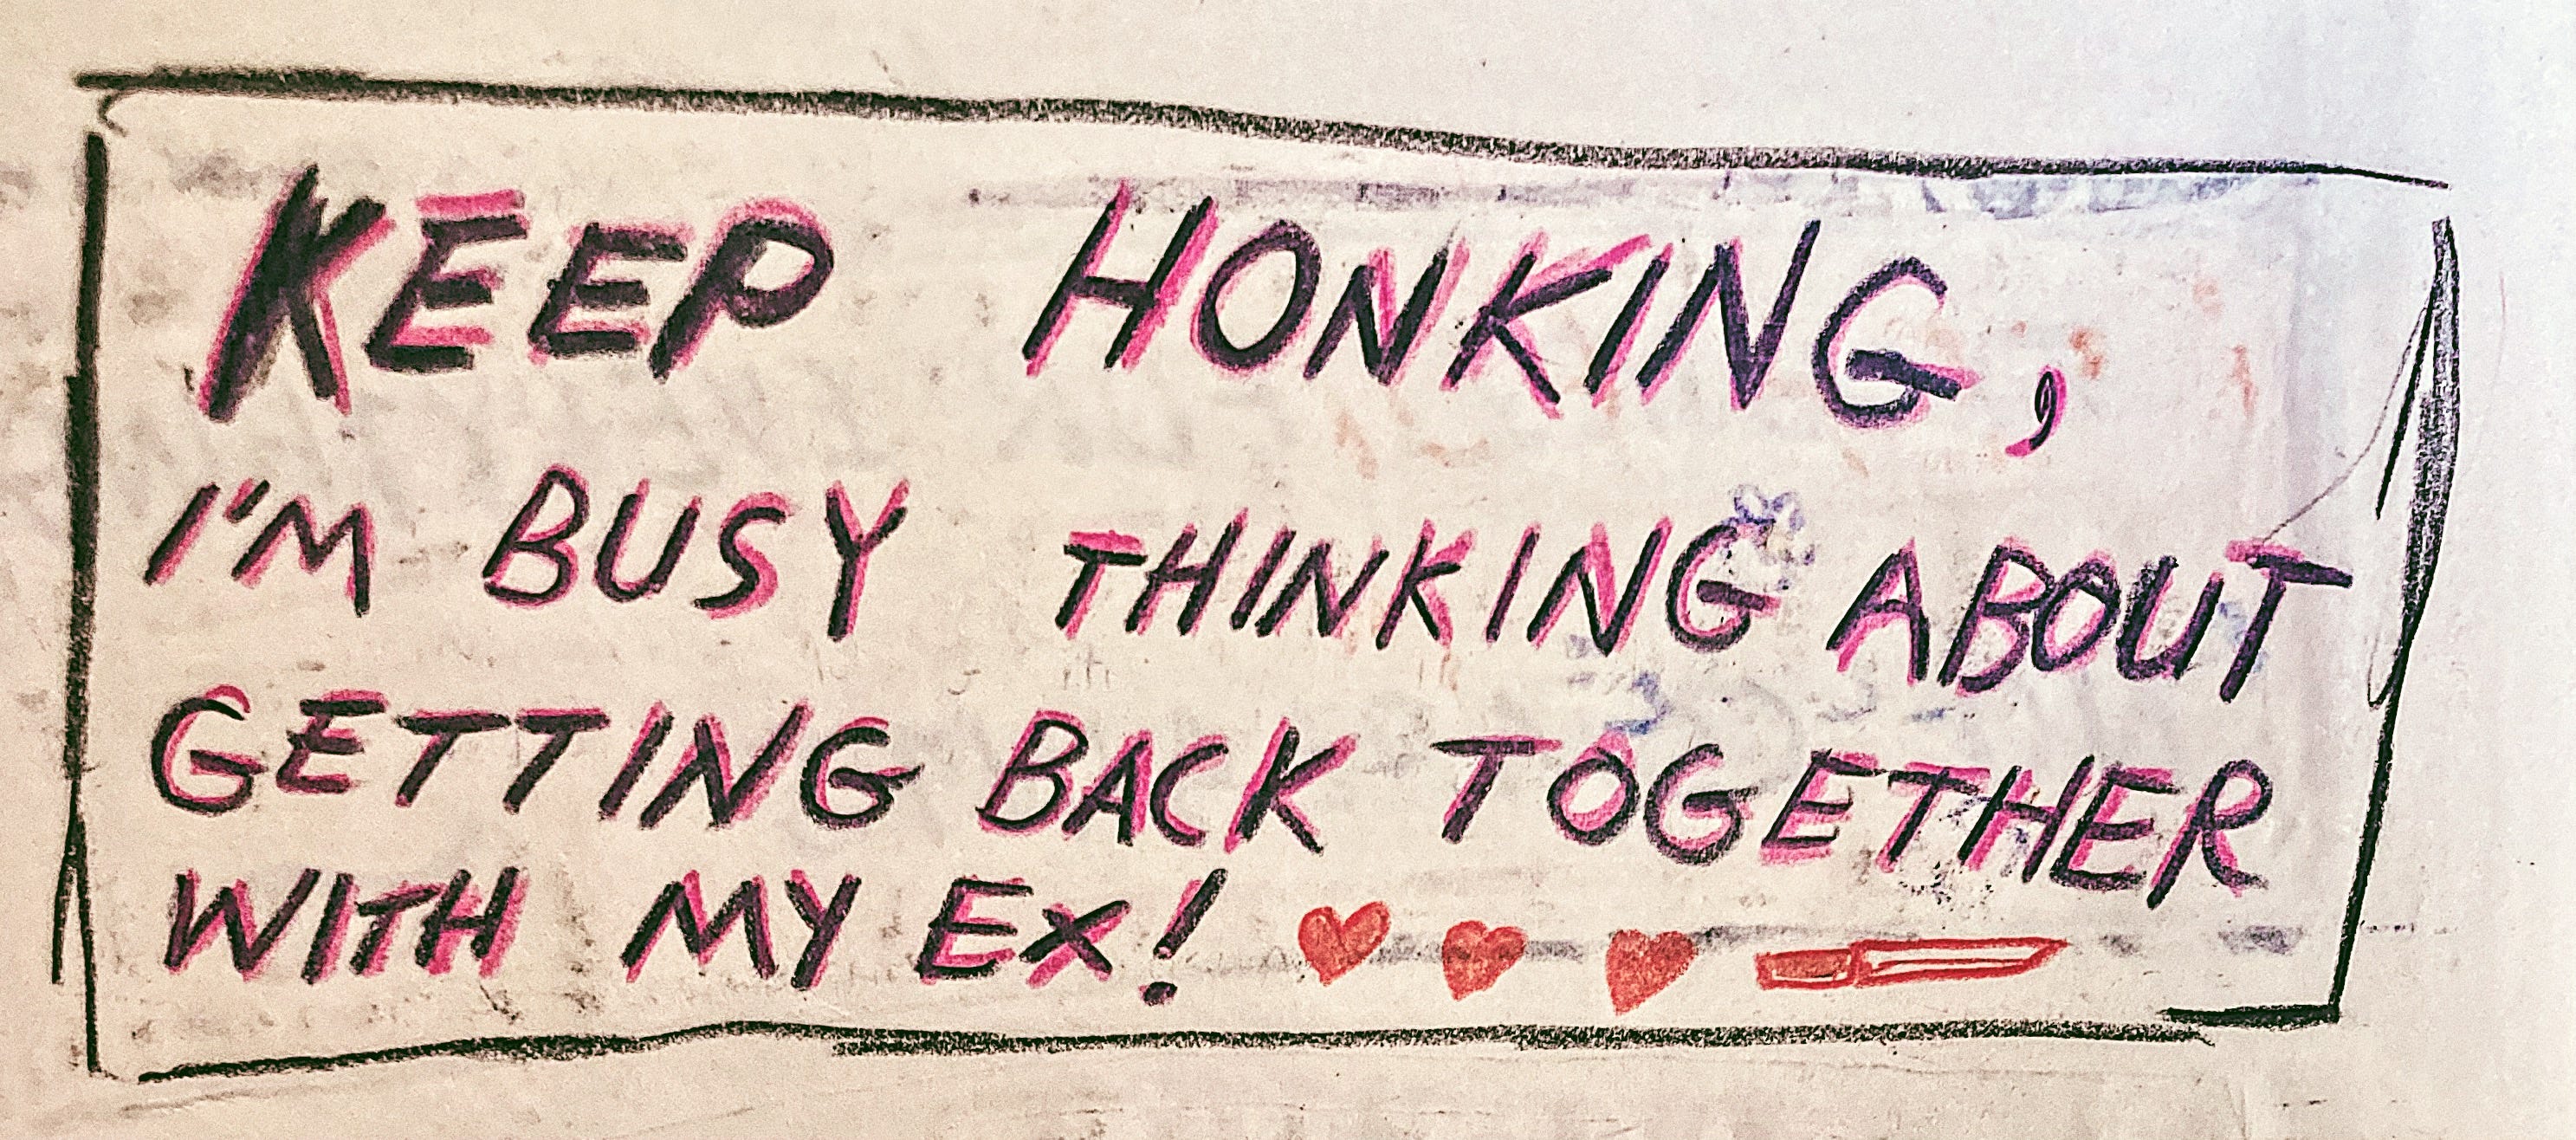 KEEP HONKING,
I'M BUSY THINKING ABOUT
GETTING BACK TOGETHER
WITH MY EX!